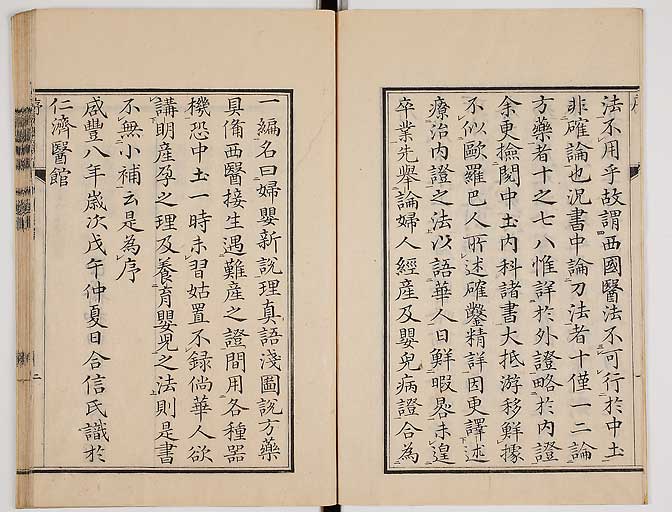 法不用乎故謂西國醫法不可行於中土
非確論也況書中論刀法者十僅一二論
方藥者十之七八惟詳於外證略於內證
余更撿閱中土內科諸書大抵游移鮮據
不似歐羅巴人所述確鑿精詳因更譯述
療治內證之法以語華人日鮮暇晷未遑
卒業先舉論婦人經產及嬰兒病證合為
一編名曰婦嬰新說理真語淺圖說方藥
具備西醫接生遇難產之證間用各種器
機恐中土一時未習姑置不録倘華人欲
講明產孕之理及養育嬰兒之法則是書
不無小補云是為序
咸豐八年歲次戊午仲夏日合信氏識於
仁濟醫館
序
二